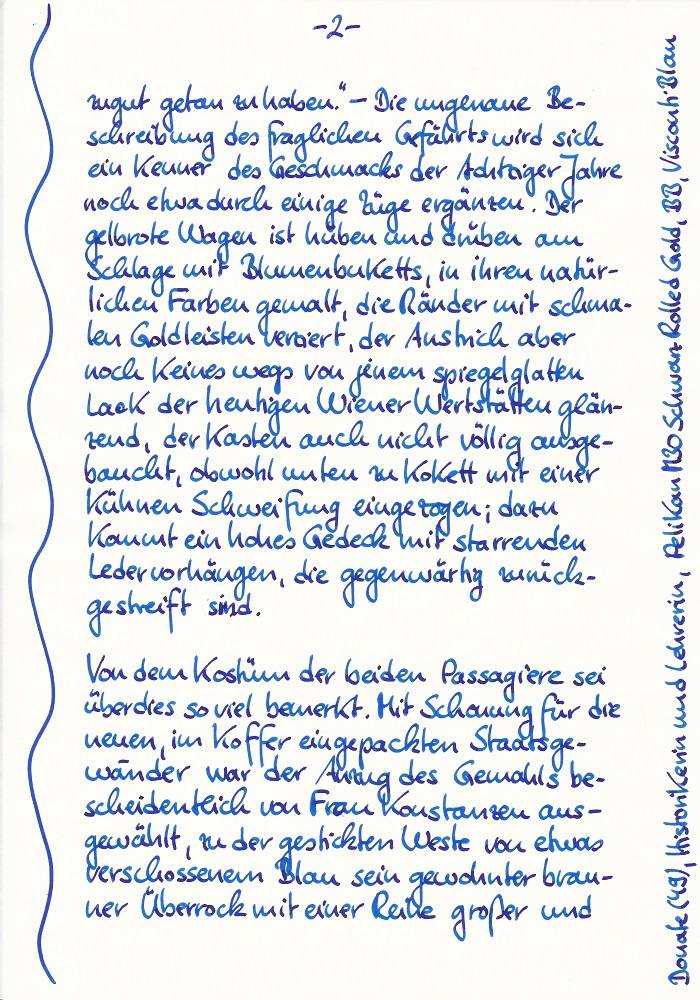 -2-
zugut getan zu haben." – Die ungenaue Be-
schreibung des fraglichen Gefährts wird sich
ein Kenner des Geschmacks der Achtziger Jahre
noch etwa durch einige Züge ergänzen. Der
gelbrote Wagen ist hüben und drüben am
Schlage mit Blumenbuketts, in ihren natür-
lichen Farben gemalt, die Ränder mit schma-
len Goldleisten verziert, der Anstrich aber
noch keineswegs von jenem spiegelglatten
Lack der heutigen Wiener Werkstätten glän-
zend, der Kasten auch nicht völlig ausge-
baucht, obwohl unten zu kokett mit einer
kühnen Schweifung eingezogen; dazu
kommt ein hohes Gedeck mit starrenden
Ledervorhängen, die gegenwärtig zurück-
gestreift sind.
Von dem Kostüm der beiden Passagiere sei
überdies so viel bemerkt. Mit Schonung für die
neuen, im Koffer eingepackten Staatsge-
wänder war der Anzug des Gemahls be-
scheidentlich von Frau Konstanzen aus-
gewählt, zu der gestickten Weste von etwas
verschossenem Blau sein gewohnter brau-
ner Überrock mit einer Reihe großer und
Donate (49), Historikerin und Lehrerin, Pelikan M30 Schwarz Rolled Gold, BB, Visconti Blau